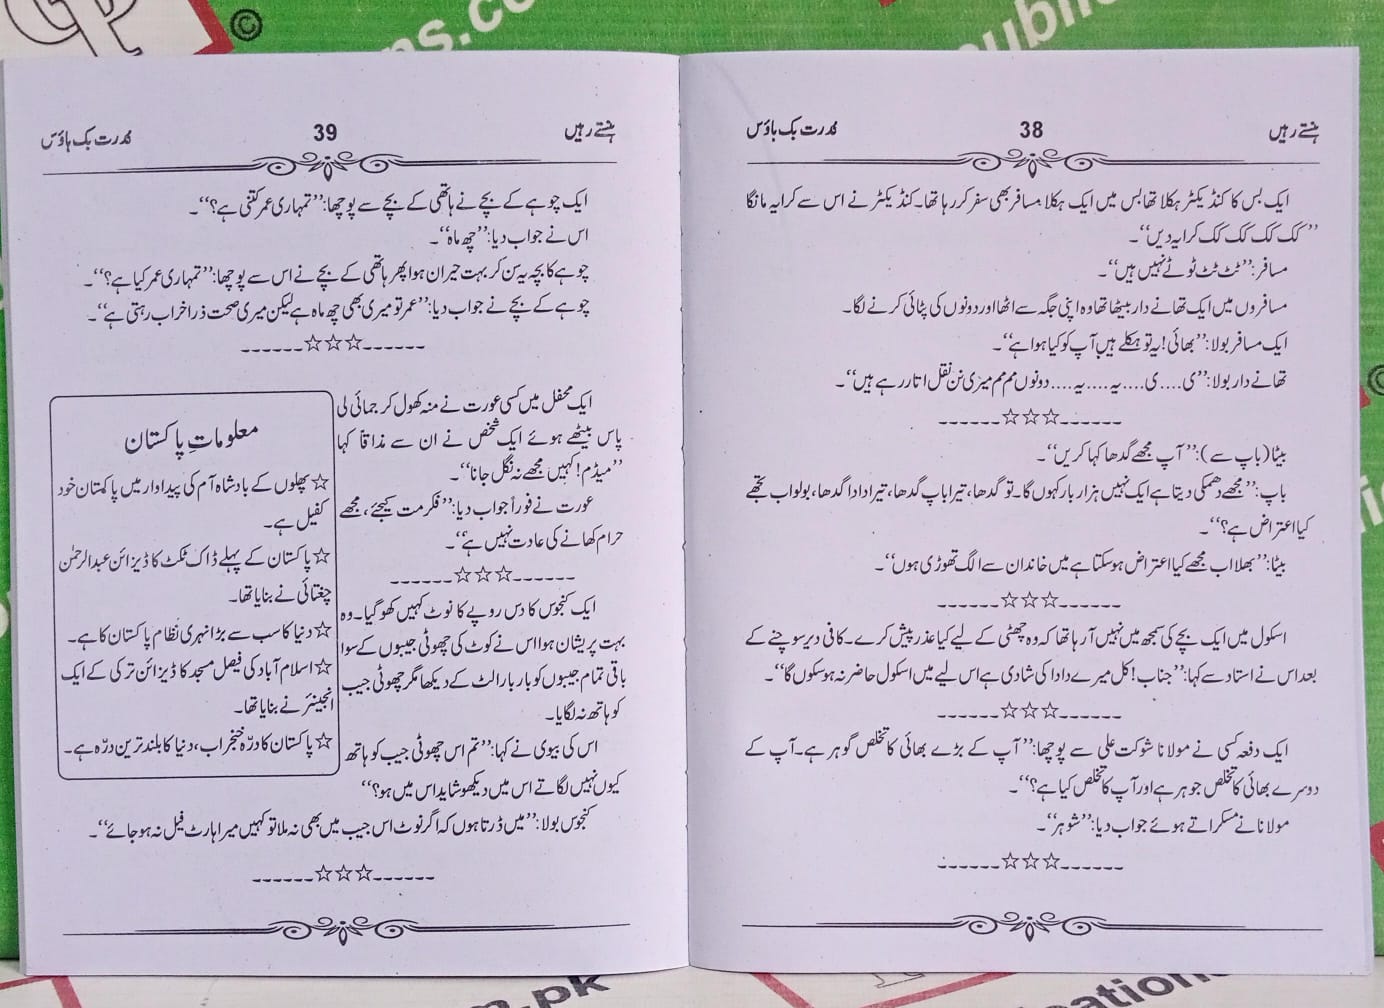 ہنستے رہیں
38
قدرت بک ہاؤس
ایک بس کا کنڈیکٹر ہکلا تھا بس میں ایک ہکلا مسافر بھی سفر کر رہا تھا۔ کنڈیکٹر نے اس سے کرایہ مانگا
’’کک کک کک کک کرایہ دیں‘‘۔
مسافر: ’’ٹٹ ٹٹ ٹوٹے نہیں ہیں‘‘۔
مسافروں میں ایک تھانے دار بیٹھا تھا وہ اپنی جگہ سے اٹھا اور دونوں کی پٹائی کرنے لگا۔
ایک مسافر بولا: ’’بھائی! یہ تو ہکلے ہیں آپ کو کیا ہوا ہے‘‘۔
تھانے دار بولا: ’’ی.... ی.... یہ.... یہ.... دونوں مم مم میری نن نقل اتار رہے ہیں‘‘۔
------☆☆☆------
بیٹا (باپ سے): ’’آپ مجھے گدھا کہا کریں‘‘۔
باپ: ’’مجھے دھمکی دیتا ہے ایک نہیں ہزار بار کہوں گا۔ تو گدھا، تیرا باپ گدھا، تیرا دادا گدھا، بولو اب تجھے
کیا اعتراض ہے؟‘‘۔
بیٹا: ’’بھلا اب مجھے کیا اعتراض ہو سکتا ہے میں خاندان سے الگ تھوڑی ہوں‘‘۔
------☆☆☆------
اسکول میں ایک بچے کی سمجھ میں نہیں آ رہا تھا کہ وہ چھٹی کے لیے کیا عذر پیش کرے۔ کافی دیر سوچنے کے
بعد اس نے استاد سے کہا: ’’جناب! کل میرے دادا کی شادی ہے اس لیے میں اسکول حاضر نہ ہو سکوں گا‘‘۔
------☆☆☆------
ایک دفعہ کسی نے مولانا شوکت علی سے پوچھا: ’’آپ کے بڑے بھائی کا تخلص گوہر ہے۔ آپ کے
دوسرے بھائی کا تخلص جوہر ہے اور آپ کا تخلص کیا ہے؟‘‘۔
مولانا نے مسکراتے ہوئے جواب دیا: ’’شوہر‘‘۔
------☆☆☆------
ہنستے رہیں
39
قدرت بک ہاؤس
ایک چوہے کے بچے نے ہاتھی کے بچے سے پوچھا: ’’تمہاری عمر کتنی ہے؟‘‘۔
اس نے جواب دیا: ’’چھ ماہ‘‘۔
چوہے کا بچہ یہ سن کر بہت حیران ہوا پھر ہاتھی کے بچے نے اس سے پوچھا: ’’تمہاری عمر کیا ہے؟‘‘۔
چوہے کے بچے نے جواب دیا: ’’عمر تو میری بھی چھ ماہ ہے لیکن میری صحت ذرا خراب رہتی ہے‘‘۔
------☆☆☆------
ایک محفل میں کسی عورت نے منہ کھول کر جمائی لی
پاس بیٹھے ہوئے ایک شخص نے ان سے مذاقاً کہا
’’میڈم! کہیں مجھے نہ نگل جانا‘‘۔
عورت نے فوراً جواب دیا: ’’فکر مت کیجئے، مجھے
حرام کھانے کی عادت نہیں ہے‘‘۔
------☆☆☆------
ایک کنجوس کا دس روپے کا نوٹ کہیں کھو گیا۔ وہ
بہت پریشان ہوا اس نے کوٹ کی چھوٹی جیبوں کے سوا
باقی تمام جیبوں کو بار بار الٹ کے دیکھا مگر چھوٹی جیب
کو ہاتھ نہ لگایا۔
اس کی بیوی نے کہا: ’’تم اس چھوٹی جیب کو ہاتھ
کیوں نہیں لگاتے اس میں دیکھو شاید اس میں ہو؟‘‘
کنجوس بولا: ’’میں ڈرتا ہوں کہ اگر نوٹ اس جیب میں بھی نہ ملا تو کہیں میرا ہارٹ فیل نہ ہو جائے‘‘۔
------☆☆☆------
معلوماتِ پاکستان
☆ پھلوں کے بادشاہ آم کی پیداوار میں پاکستان خود
کفیل ہے۔
☆ پاکستان کے پہلے ڈاک ٹکٹ کا ڈیزائن عبدالرحمٰن
چغتائی نے بنایا تھا۔
☆ دنیا کا سب سے بڑا نہری نظام پاکستان کا ہے۔
☆ اسلام آباد کی فیصل مسجد کا ڈیزائن ترکی کے ایک
انجینئر نے بنایا تھا۔
☆ پاکستان کا درّہ خنجراب، دنیا کا بلند ترین درّہ ہے۔